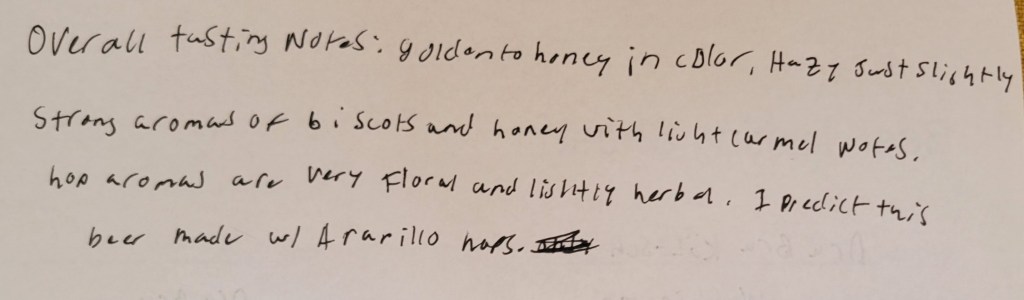 Overall tasting Notes: golden to honey in color, Hazy Just slightly
Strong aromas of biscots and honey with light carmel notes.
hop aromas are very floral and lightly herbal. I predict this
beer made w/ Ararillo hops.